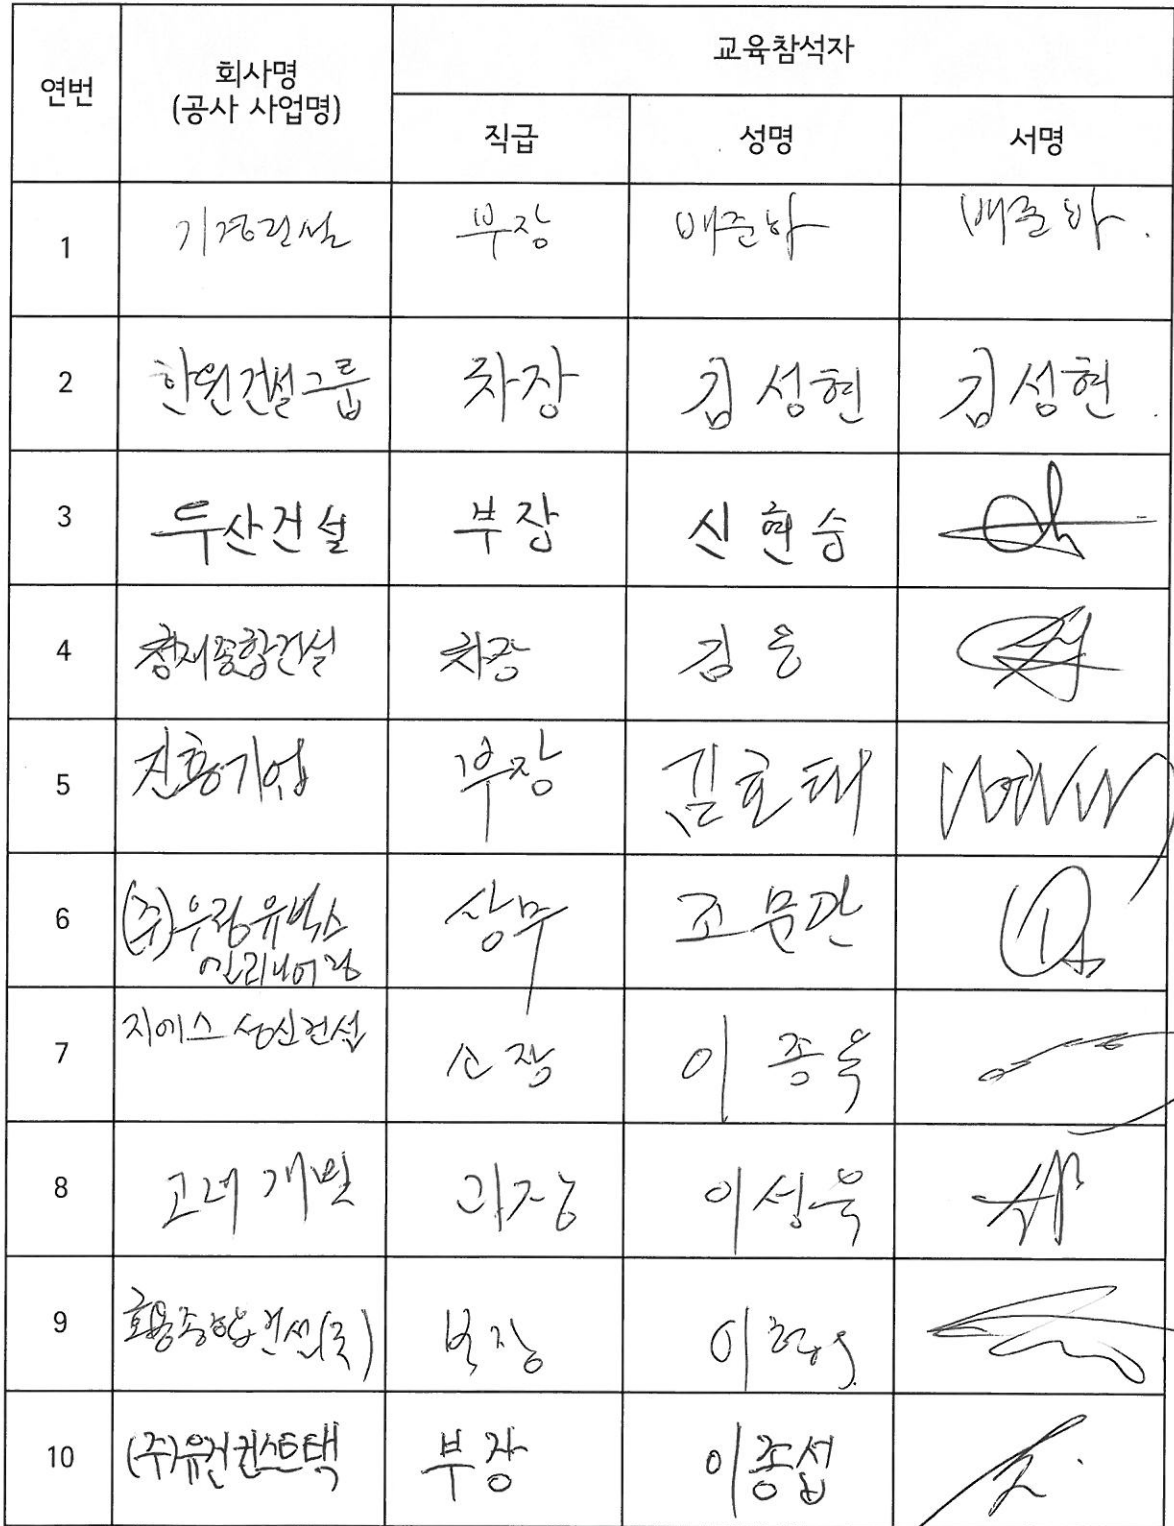 연번
회사명
(공사 사업명)
교육참석자
직급
성명
서명
1
기경건설
부장
배준하
배준하
2
한원건설그룹
차장
김성현
김성현
3
두산건설
부장
신현승
4
차장
김웅
5
진흥기업
부장
김효태
6
(주)우정유박스
엔지니어링
상무
조문관
7
지에스 성신건설
소장
이종욱
8
고려개발
과장
이성욱
9
부장
10
(주)유건컨스트택
부장
이종섭